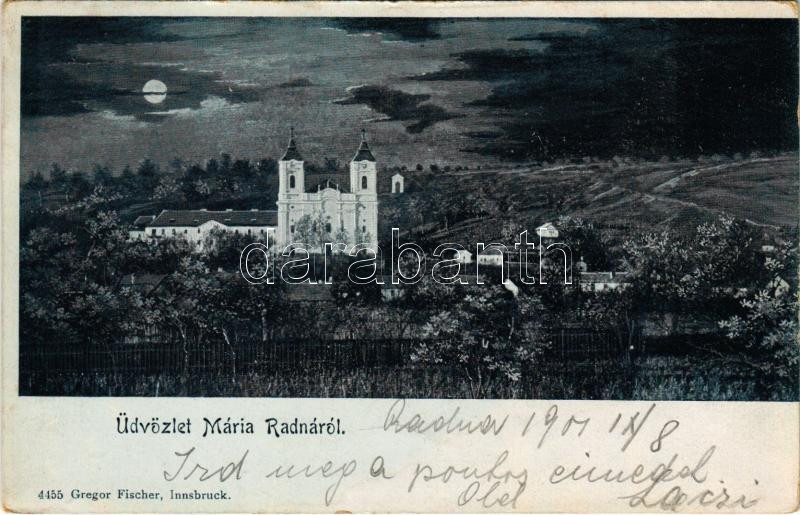 darabanth
Üdvözlet Mária Radnáról.
Radna 1901 IX/8
Ird meg a pontos cimeged
Ölel Laczi
4455 Gregor Fischer, Innsbruck.